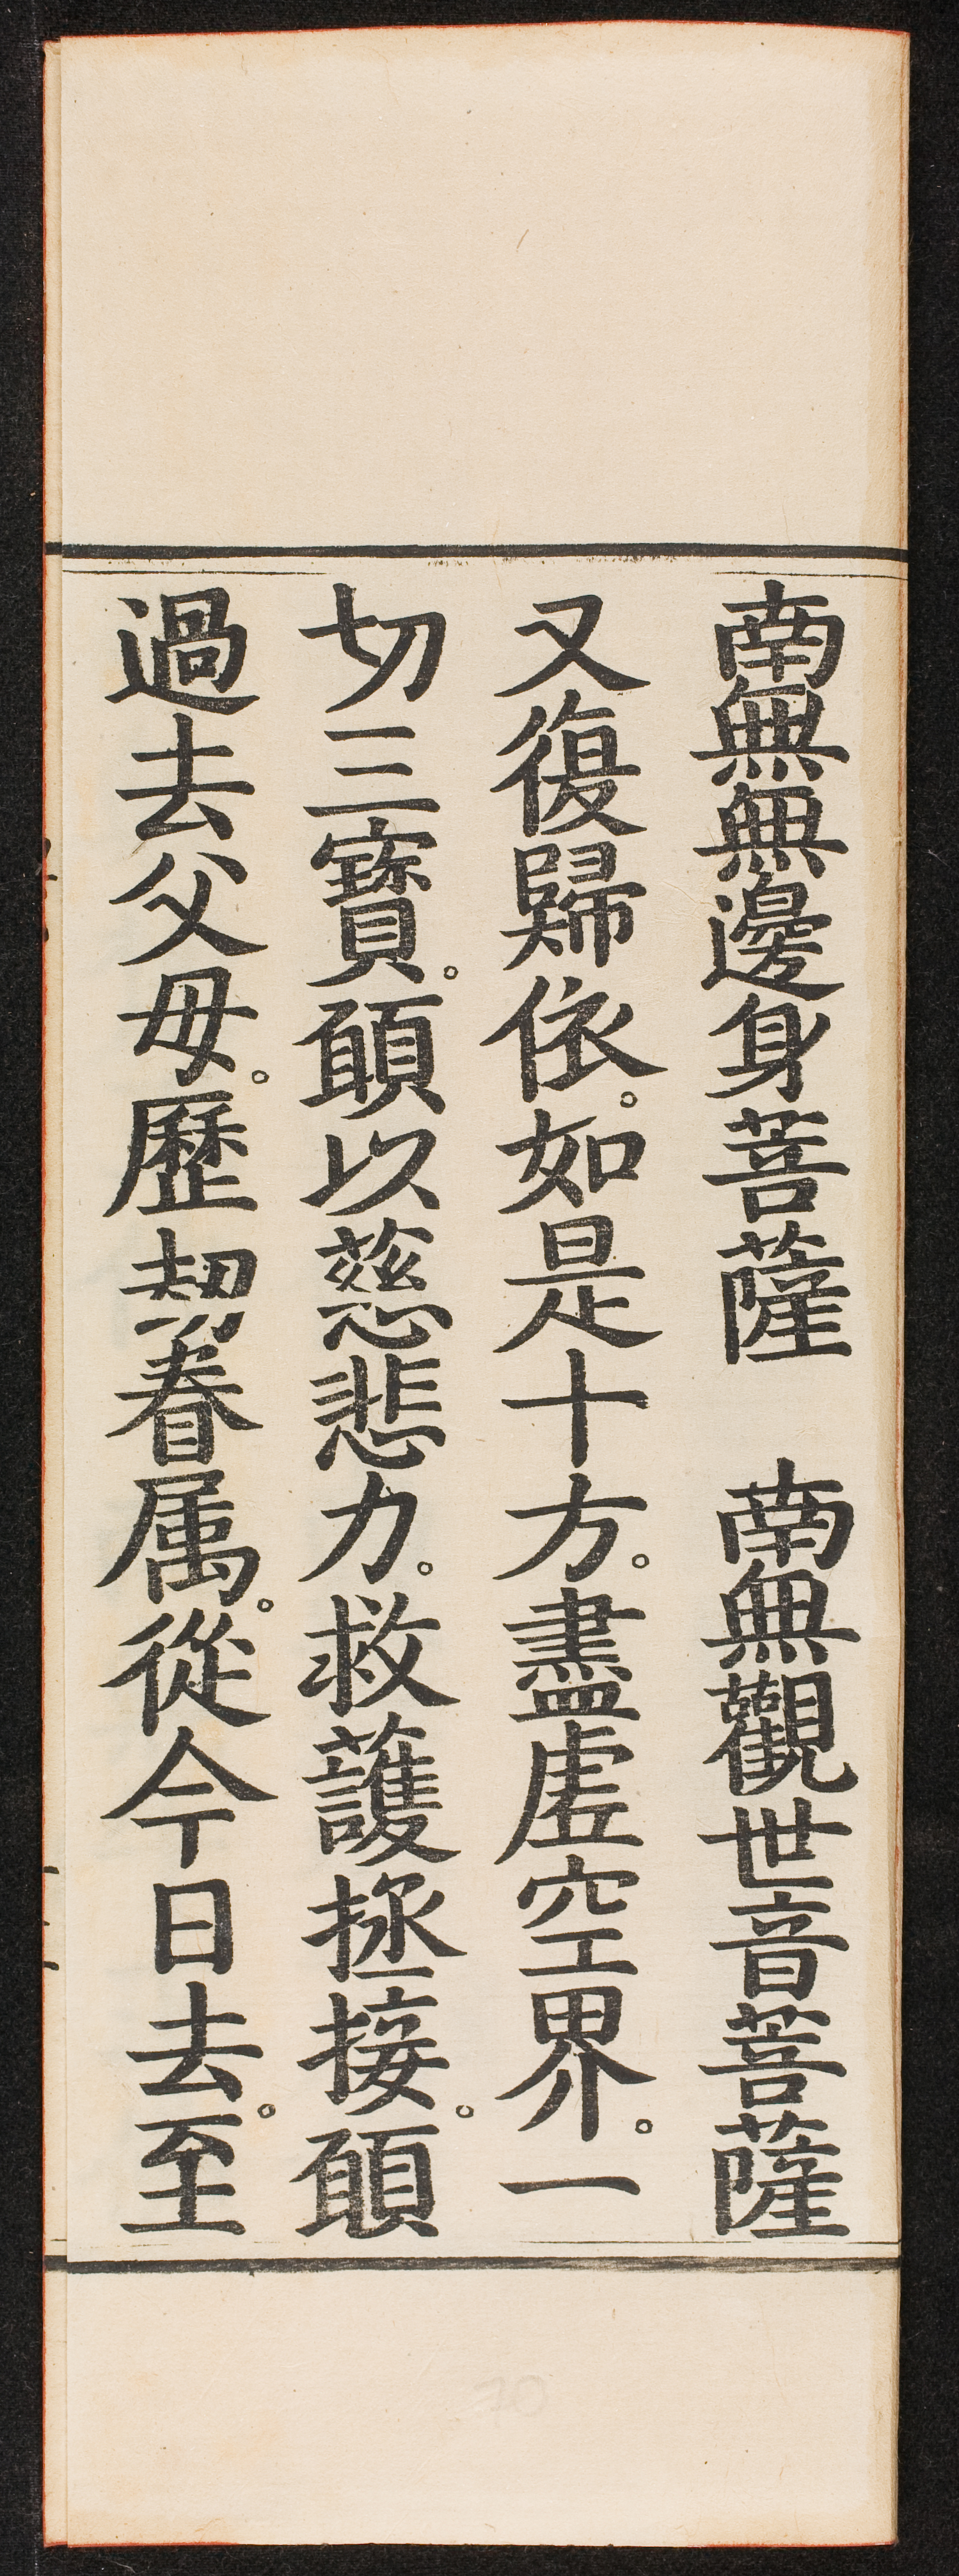 南無無邊身菩薩　南無觀世音菩薩
又復歸依。如是十方。盡虛空界。一
切三寶。願以慈悲力。救護拯接。願
過去父母。歷劫眷属。從今日去。至